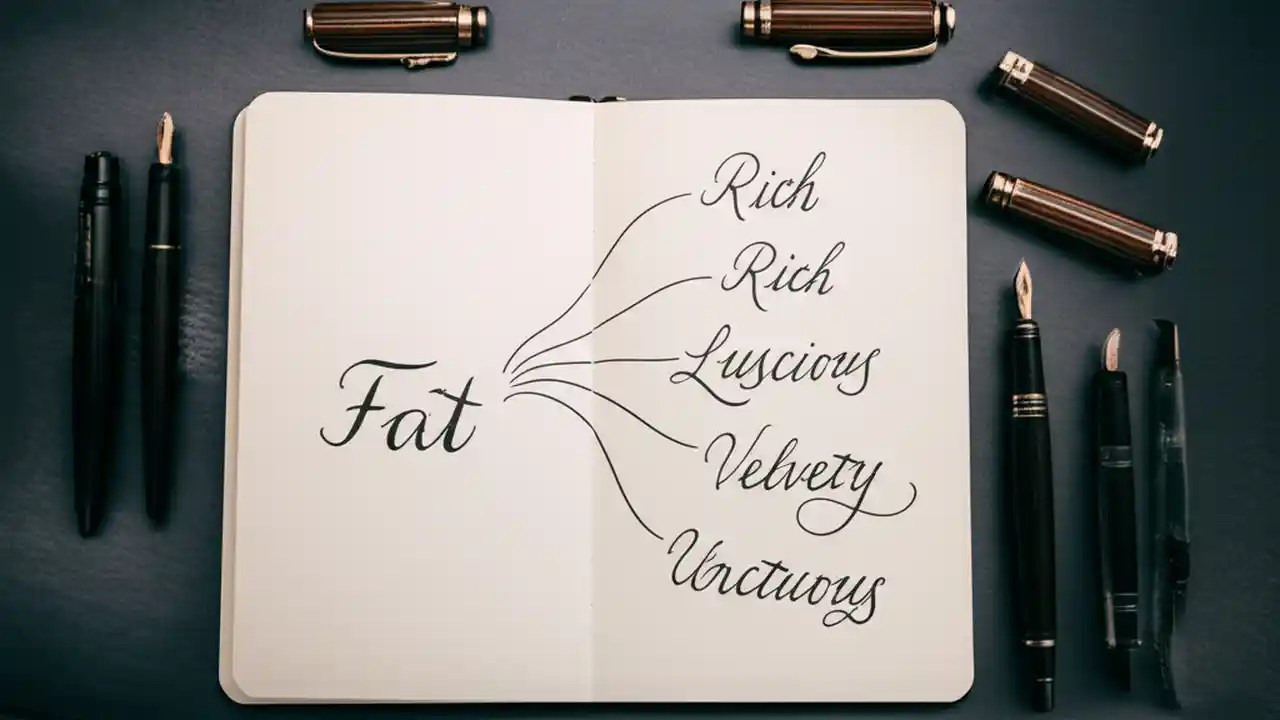 Fat
Rich
Rich
Luscious
Velvety
Unctuous